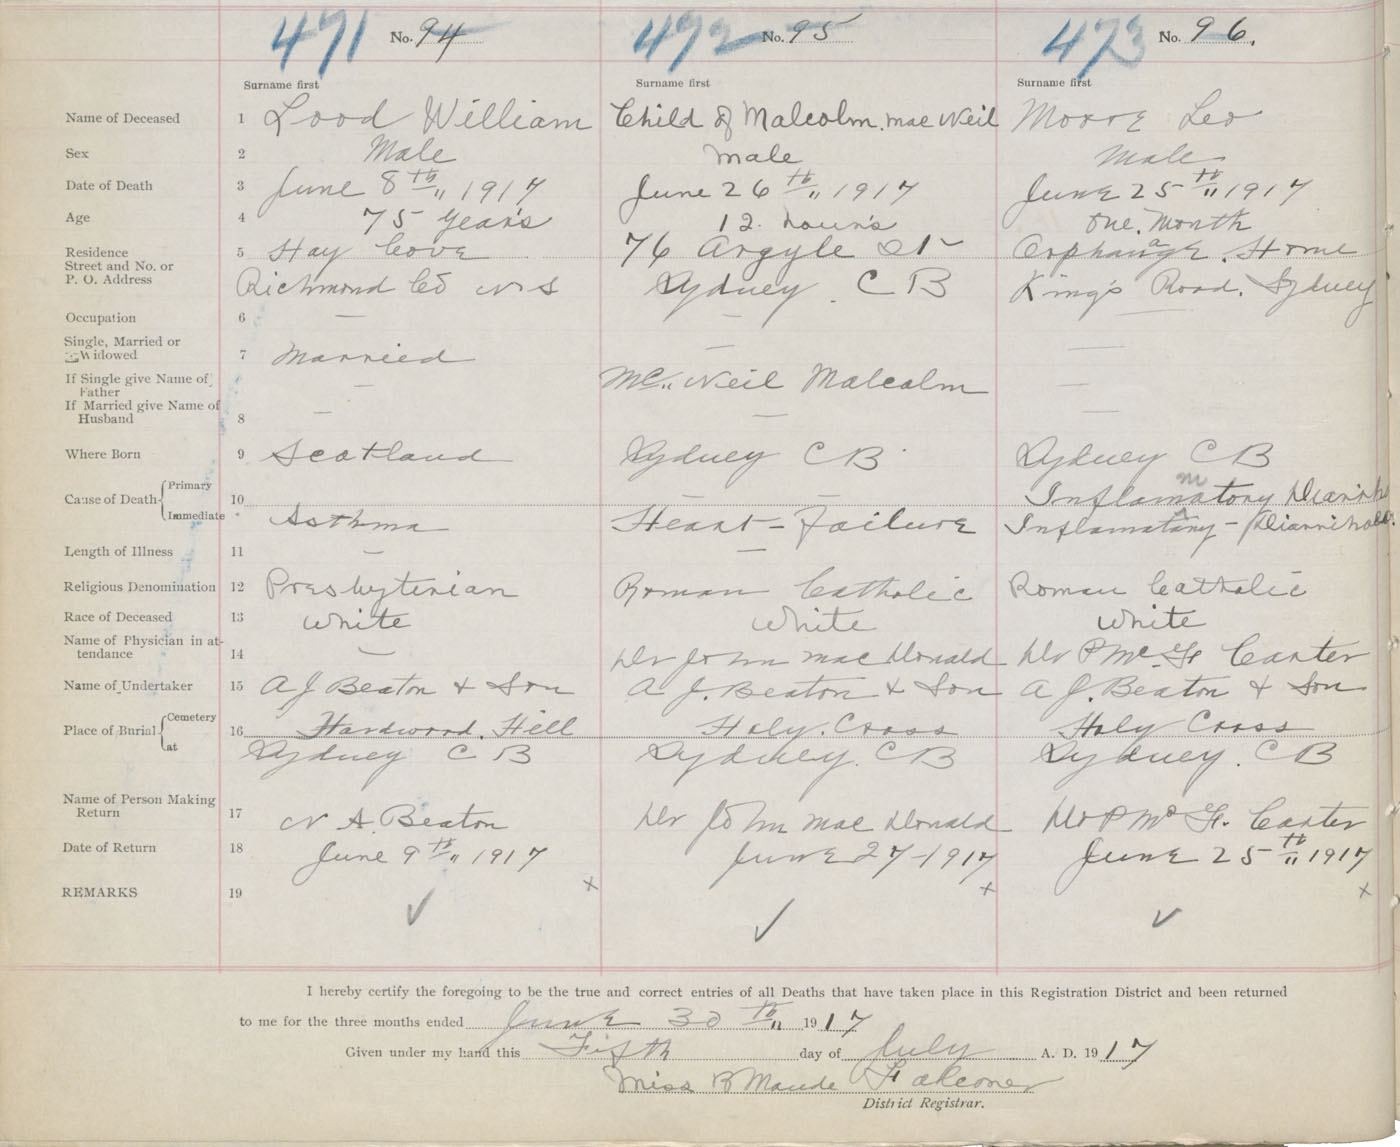 471 No. 94 472 No. 95 473 No. 96.
Surname first Surname first Surname first
Name of Deceased 1 Lood William Child of Malcolm. mac Neil Moore Leo
Sex 2 Male male male
Date of Death 3 June 8th 1917 June 26th 1917 June 25th 1917
Age 4 75 Years 12. hours one. Month
Residence 5 Hay Cove 76 Argyle St Orphanage. Home
Street and No. or
P. O. Address Richmond Co N S Sydney. C B King's Road. Sydney
Occupation 6 — — —
Single, Married or
Widowed 7 Married — —
If Single give Name of
Father — Mc Neil Malcolm —
If Married give Name of
Husband 8 — — —
Where Born 9 Scotland Sydney C B Sydney C B
Cause of Death Primary 10 — — Inflammatory
Immediate " Asthma Heart - Failure Inflamatory -
Length of Illness 11 — —
Religious Denomination 12 Presbyterian Roman Catholic Roman Catholic
Race of Deceased 13 white white white
Name of Physician in at-
tendance 14 — Dr John mac Donald Dr P Mc F Carter
Name of Undertaker 15 A J Beaton & Son A J. Beaton & Son A J. Beaton & Son
Place of Burial Cemetery 16 Hardwood. Hill Holy. Cross Holy Cross
at Sydney C B Sydney. C B Sydney. C B
Name of Person Making
Return 17 N A. Beaton Dr John mac Donald Dr P Mc F. Carter
Date of Return 18 June 9th 1917 June 27-1917 June 25th 1917
REMARKS 19 x x x
✓ ✓ ✓
I hereby certify the foregoing to be the true and correct entries of all Deaths that have taken place in this Registration District and been returned
to me for the three months ended June 30th 1917
Given under my hand this Fifth day of July A. D. 1917
Miss B Maude Falconer
District Registrar.